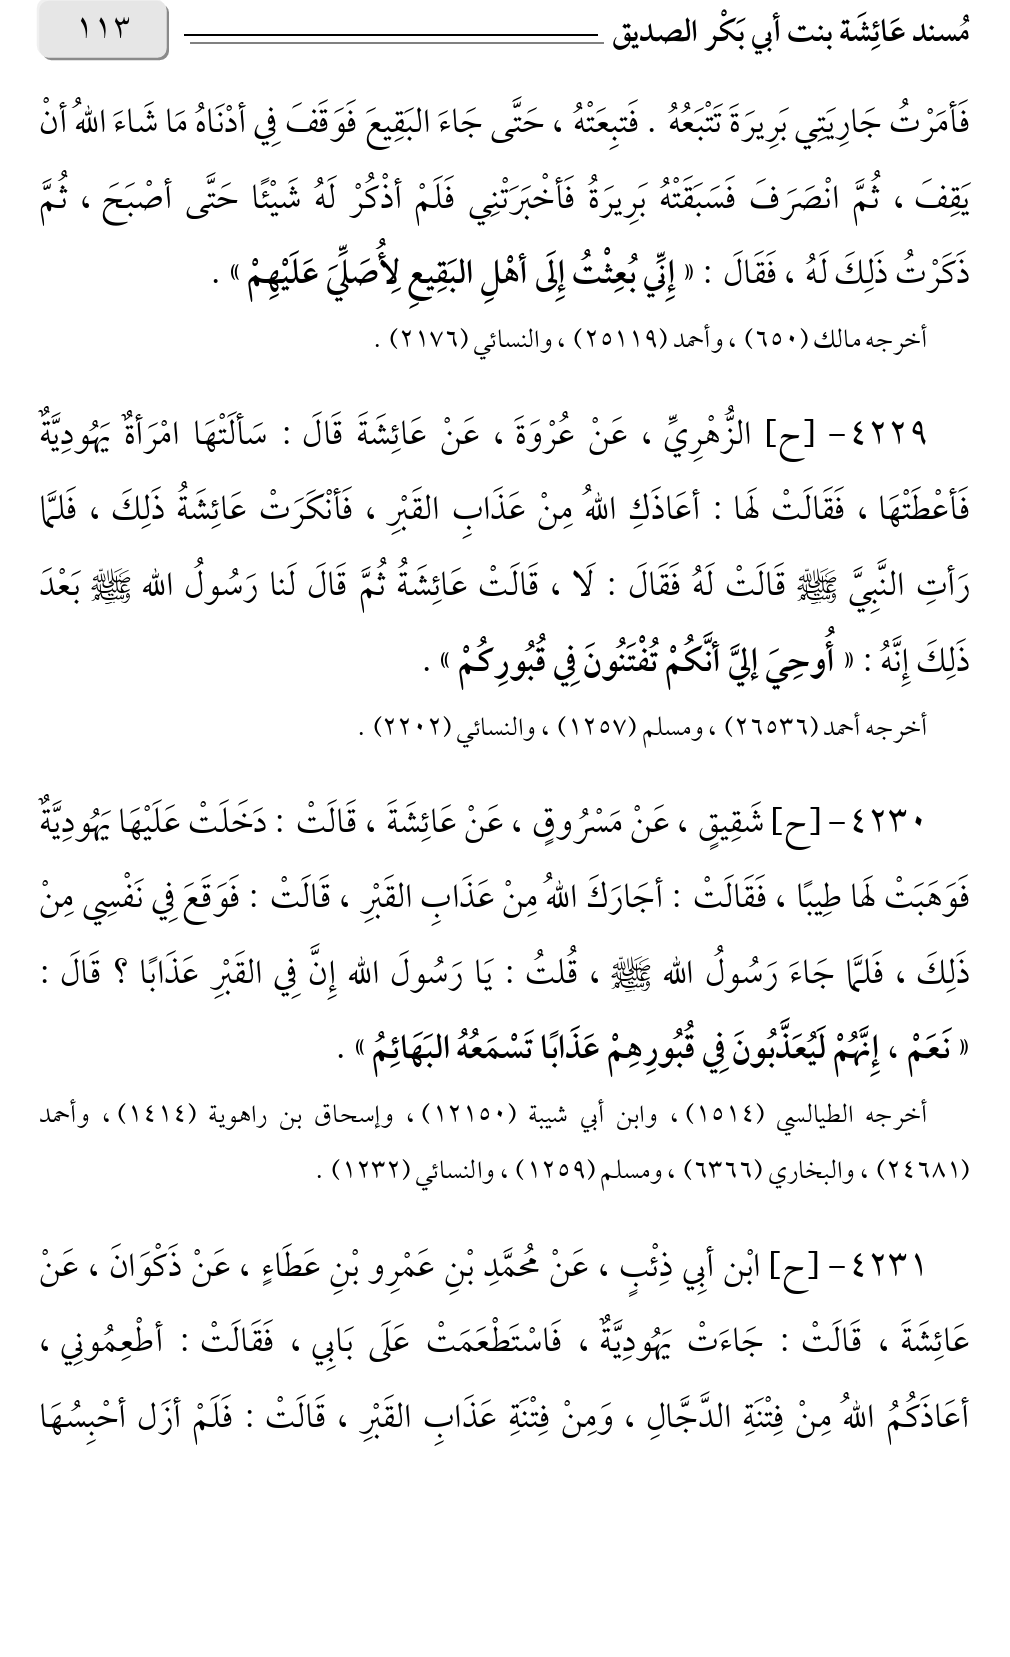 مُسند عَائِشَة بنت أبي بَكْر الصديق
١١٣
فَأمَرْتُ جَارِيَتِي بَرِيرَةَ تَتْبَعُهُ . فَتبِعَتْهُ ، حَتَّى جَاءَ البَقِيعَ فَوَقَفَ فِي أدْنَاهُ مَا شَاءَ اللهُ أنْ
يَقِفَ ، ثُمَّ انْصَرَفَ فَسَبَقَتْهُ بَرِيرَةُ فَأخْبَرَتْنِي فَلَمْ أذْكُرْ لَهُ شَيْئًا حَتَّى أصْبَحَ ، ثُمَّ
ذَكَرْتُ ذَلِكَ لَهُ ، فَقَالَ : « إِنِّي بُعِثْتُ إِلَى أهْلِ البَقِيعِ لِأُصَلِّيَ عَلَيْهِمْ » .
أخرجه مالك (٦٥٠) ، وأحمد (٢٥١١٩) ، والنسائي (٢١٧٦) .
٤٢٢٩- [ح] الزُّهْرِيِّ ، عَنْ عُرْوَةَ ، عَنْ عَائِشَةَ قَالَ : سَألَتْهَا امْرَأةٌ يَهُودِيَّةٌ
فَأعْطَتْهَا ، فَقَالَتْ لَها : أعَاذَكِ اللهُ مِنْ عَذَابِ القَبْرِ ، فَأنْكَرَتْ عَائِشَةُ ذَلِكَ ، فَلمَّا
رَأتِ النَّبِيَّ ﷺ قَالَتْ لَهُ فَقَالَ : لَا ، قَالَتْ عَائِشَةُ ثُمَّ قَالَ لَنا رَسُولُ الله ﷺ بَعْدَ
ذَلِكَ إِنَّهُ : « أُوحِيَ إليَّ أنَّكُمْ تُفْتَنُونَ فِي قُبُورِكُمْ » .
أخرجه أحمد (٢٦٥٣٦) ، ومسلم (١٢٥٧) ، والنسائي (٢٢٠٢) .
٤٢٣٠- [ح] شَقِيقٍ ، عَنْ مَسْرُوقٍ ، عَنْ عَائِشَةَ ، قَالَتْ : دَخَلَتْ عَلَيْهَا يَهُودِيَّةٌ
فَوَهَبَتْ لَها طِيبًا ، فَقَالَتْ : أجَارَكَ اللهُ مِنْ عَذَابِ القَبْرِ ، قَالَتْ : فَوَقَعَ فِي نَفْسِي مِنْ
ذَلِكَ ، فَلمَّا جَاءَ رَسُولُ الله ﷺ ، قُلتُ : يَا رَسُولَ الله إِنَّ فِي القَبْرِ عَذَابًا ؟ قَالَ :
« نَعَمْ ، إِنَّهُمْ لَيُعَذَّبُونَ فِي قُبُورِهِمْ عَذَابًا تَسْمَعُهُ البَهَائِمُ » .
أخرجه الطيالسي (١٥١٤) ، وابن أبي شيبة (١٢١٥٠) ، وإسحاق بن راهوية (١٤١٤) ، وأحمد
(٢٤٦٨١) ، والبخاري (٦٣٦٦) ، ومسلم (١٢٥٩) ، والنسائي (١٢٣٢) .
٤٢٣١- [ح] ابْن أبِي ذِئْبٍ ، عَنْ مُحمَّدِ بْنِ عَمْرِو بْنِ عَطَاءٍ ، عَنْ ذَكْوَانَ ، عَنْ
عَائِشَةَ ، قَالَتْ : جَاءَتْ يَهُودِيَّةٌ ، فَاسْتَطْعَمَتْ عَلَى بَابِي ، فَقَالَتْ : أطْعِمُونِي ،
أعَاذَكُمُ اللهُ مِنْ فِتْنَةِ الدَّجَّالِ ، وَمِنْ فِتْنَةِ عَذَابِ القَبْرِ ، قَالَتْ : فَلَمْ أزَل أحْبِسُهَا